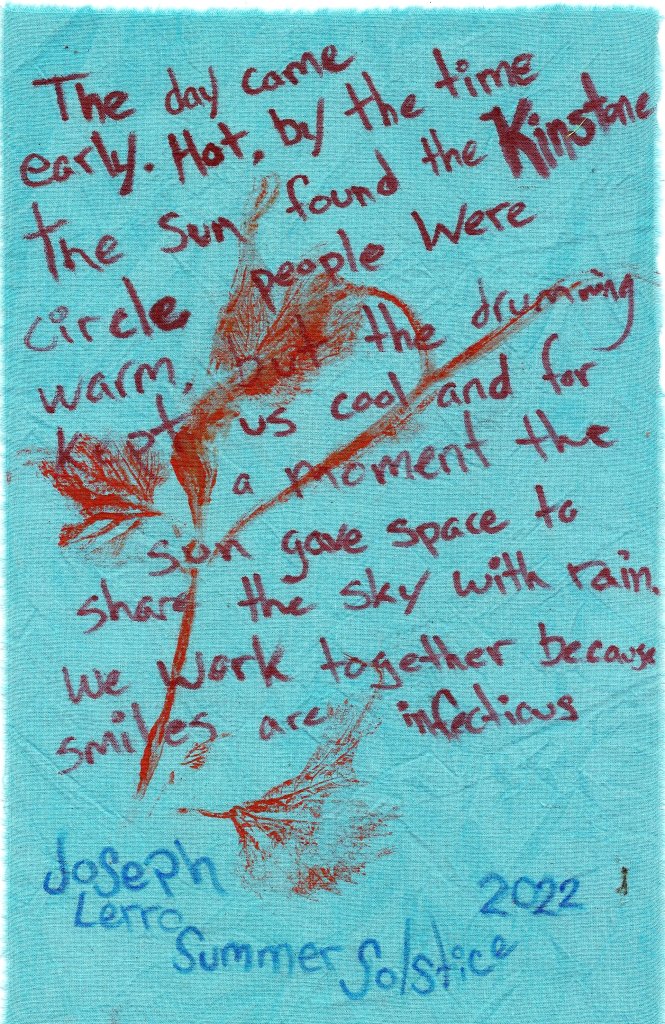 The day came
early. Hot, by the time
the sun found the Kinstone
circle people were
warm, but the drumming
kept us cool and for
a moment the
sun gave space to
share the sky with rain.
We work together because
smiles are infectious
Joseph
Lerro
2022
Summer Solstice